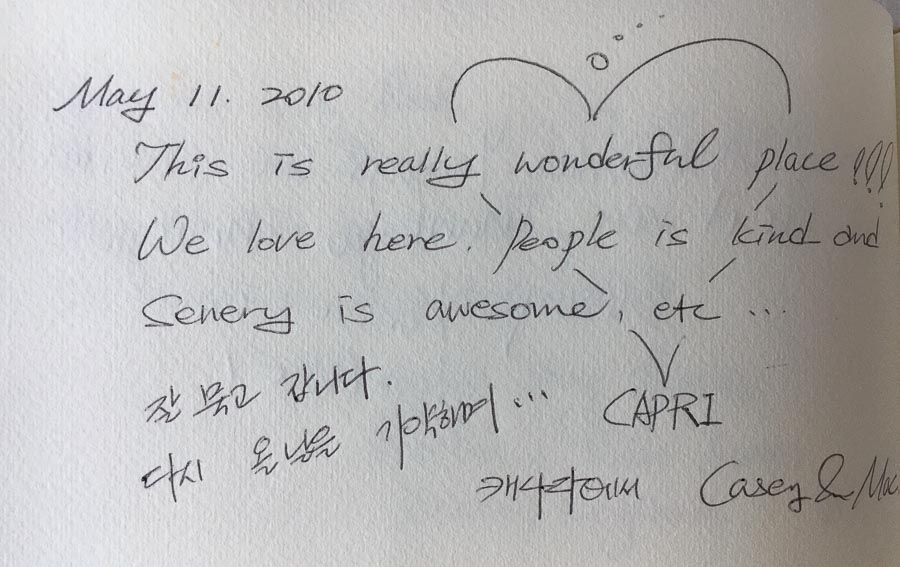 May 11. 2010
This is really wonderful place!!!
We love here. People is kind and
Senery is awesome, etc ...
잘 묵고 갑니다.
다시 올 날을 기약하며 ...
CAPRI
캐나다에서 Casey &